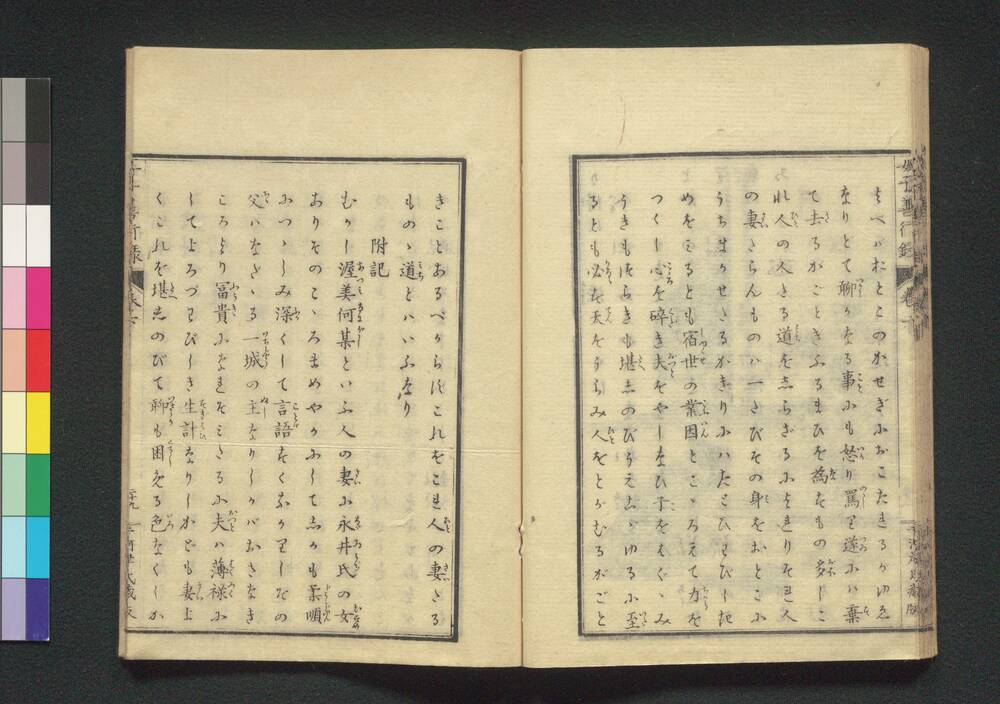 なりとて聊かなる事にも怒り罵り遂には棄
て去るがごときふるまひを為すもの多しこ
れ人の人たる道をしらざるによれりそれ人
の妻たらんものは一たびその身をおとこに
うちまかせたるかぎりにはたとひわびしき
めをみるとも宿世の業因とこゝろえて力を
つくし心を砕き夫をやしなひ子をはぐゝみ
うきもつらきも堪しのびうえこゞゆるに至
るとも必ず天をうらみ人をとがむるがごと
きことあるべからずこれをこそ人の妻たる
ものゝ道とはいふなり
附記
むかし渥美何某といふ人の妻に永井氏の女
ありそのこゝろまめやかにしてしかも柔順
につゝしみ深くして言語すくなかりしその
父はなたゝる一城の主なりしかばおさなき
ころより冨貴になれそだちたるに夫は薄禄に
してよろづわびしき生計なりしかども妻よ
くこれを堪しのびて聊も困みたる色なくしか
善行録